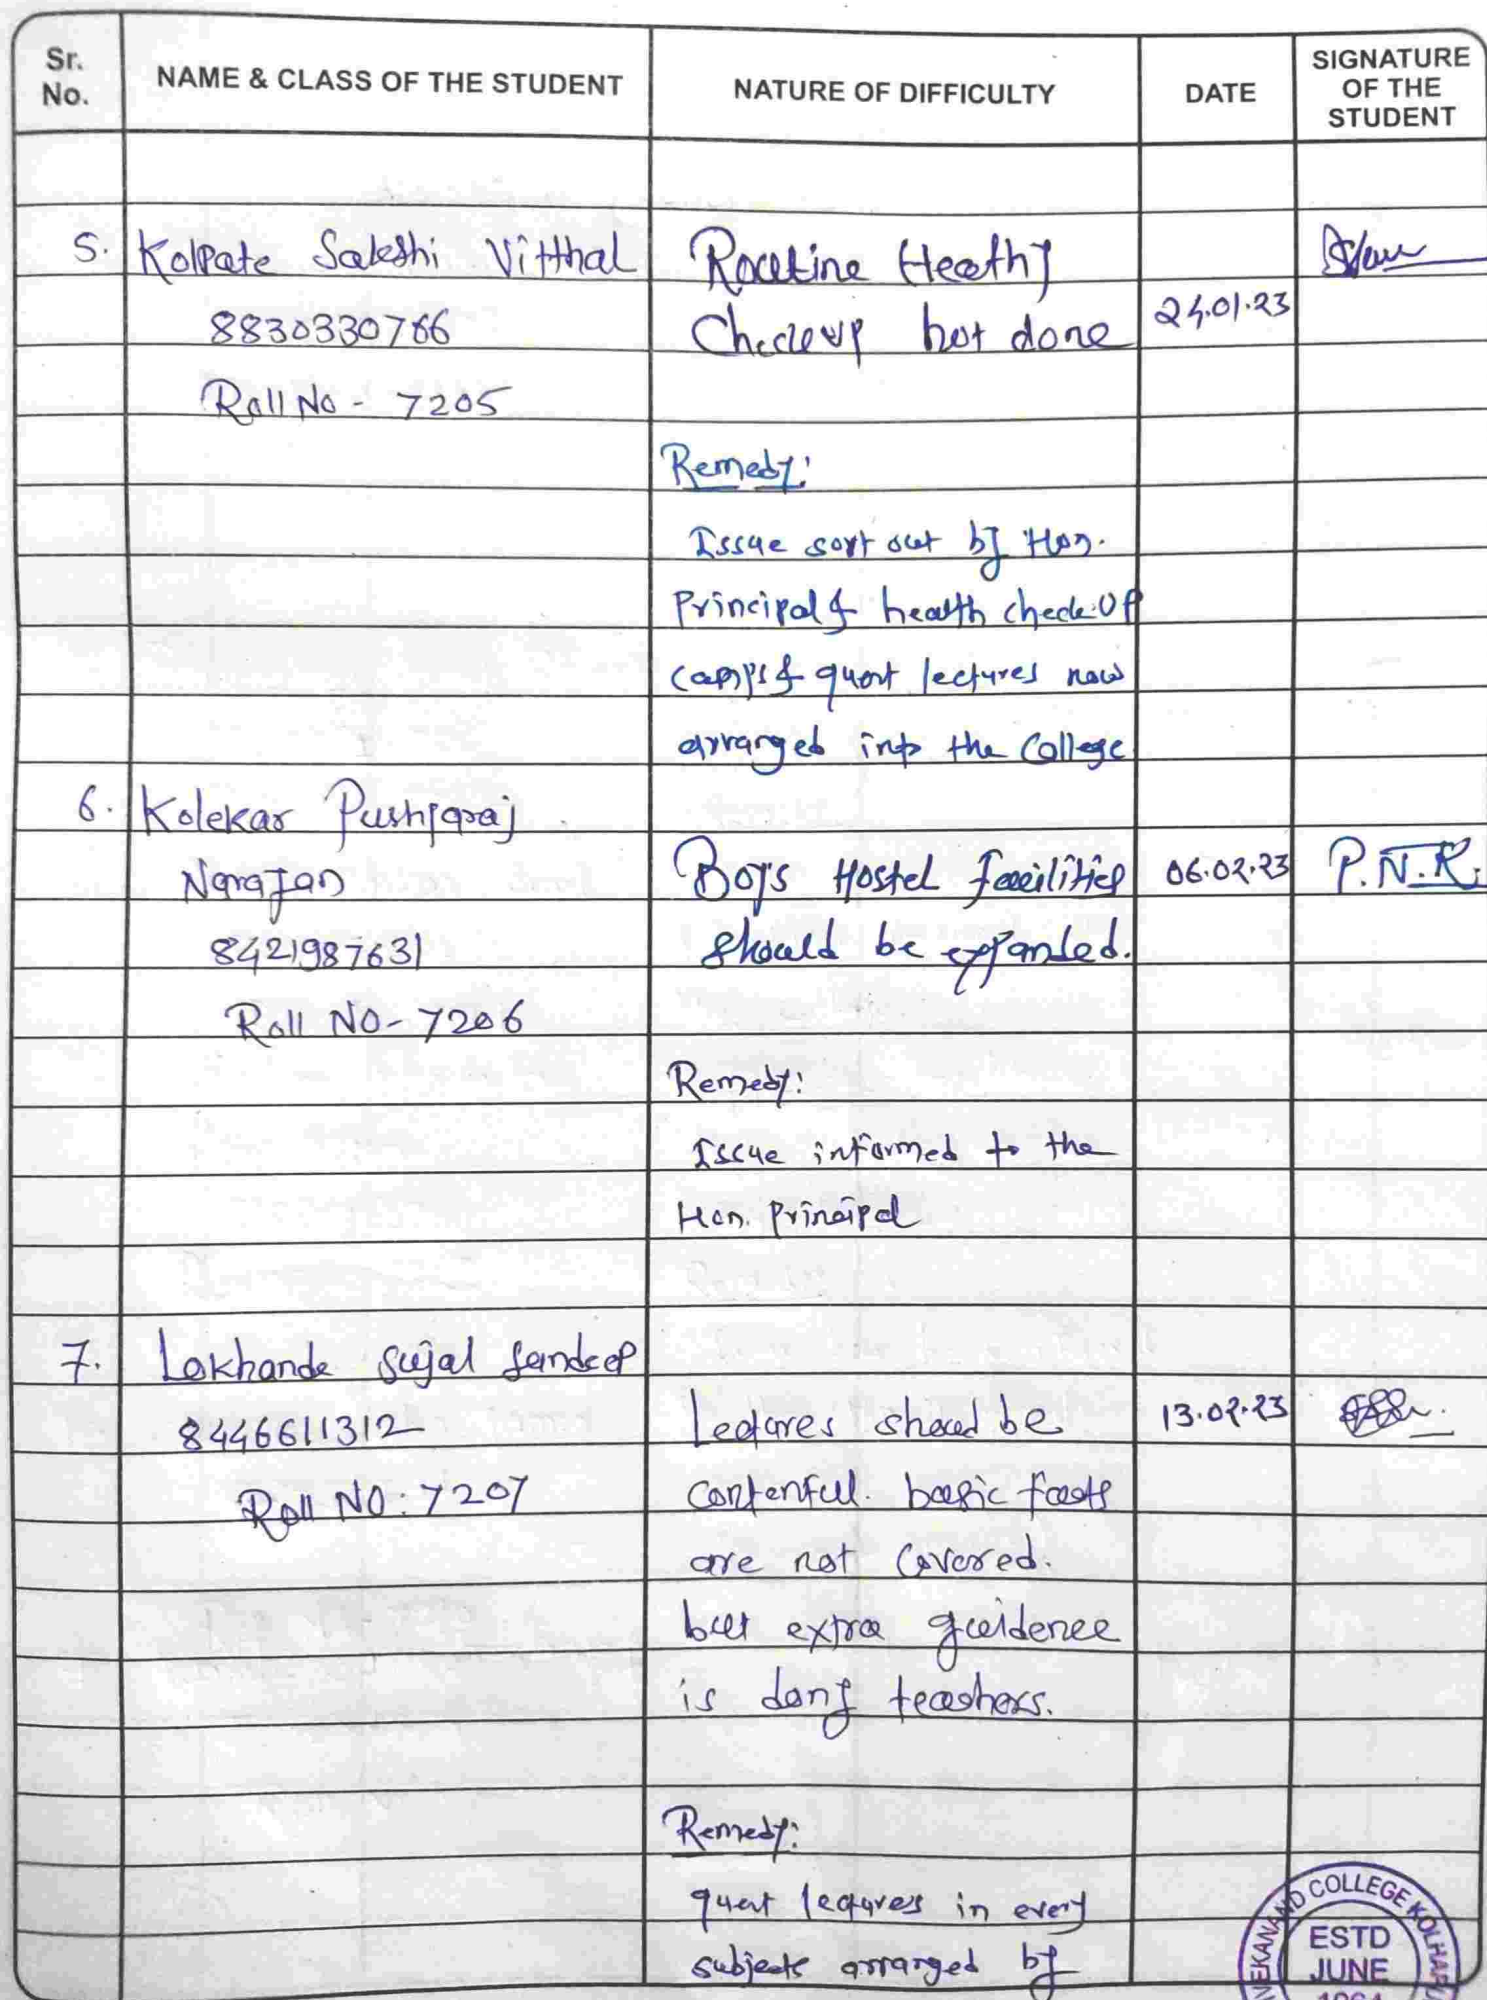 Sr. No.
NAME & CLASS OF THE STUDENT
NATURE OF DIFFICULTY
DATE
SIGNATURE OF THE STUDENT
5. Kolpate Sakshi Vitthal
8830330766
Roll No - 7205
Routine Healthy
Checkup not done
24.01.23
Remedy:
Issue sort out by Hon.
Principal & health check-up
camps & guest lectures now
arranged into the College
6. Kolekar Pushparaj
Narayan
8421987631
Roll NO- 7206
Boys Hostel facilities
should be expanded.
06.02.23
P.N.K.
Remedy:
Issue informed to the
Hon. Principal
7. Lokhande Sujal Sandeep
8446611312
Roll NO: 7207
Lectures should be
contenfull. basic facts
are not covered.
but extra guidence
is teachers.
13.02.23
Remedy:
guest lectures in every
subjects arranged by
NEKANAND COLLEGE KOLHAPU
ESTD
JUNE
1964